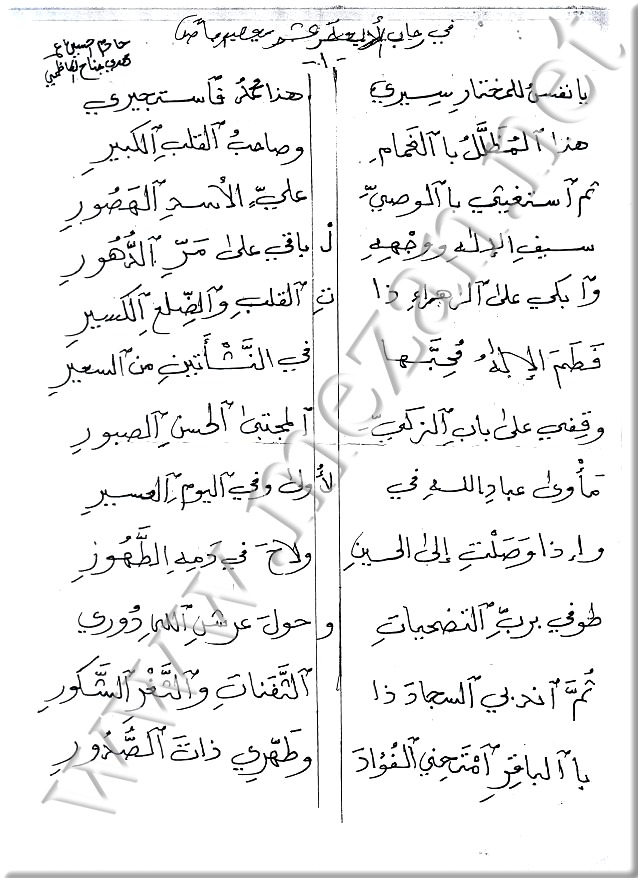 في رحاب الأربعة عشر معصوم
خادم الحسين ع
مهدي جناح الكاظمي
-١-
يا نفسُ للمختارِ سِيري هذا محمدُ فٱستجيري
هذا ٱلمُظلَّلُ بٱلغمامِ وصاحبُ ٱلقلبِ ٱلكبيرِ
ثم ٱستغيثي بٱلوصيِّ عليٍّ ٱلأسدِ ٱلهصُورِ
سيفِ الإلهِ ووجْهِهِ ٱلـ باقي على مَرِّ ٱلدُّهُورِ
وٱبكي على ٱلزهراءِ ذا تِ ٱلقلبِ وٱلضِّلعِ ٱلكسيرِ
فَطَمَ الإلهُ مُحِبَّها في النَّشْأَتينِ من ٱلسعيرِ
وقِفي على بابِ ٱلزكيِّ ٱلمجتبى ٱلحسنِ ٱلصبورِ
مأْوى عبادِ اللهِ في ٱلأُولى وفي ٱليومِ ٱلعسيرِ
وإذا وَصَلْتِ إلى الحسينِ ولاحَ في دَمِهِ الطَّهُورِ
طوفي بربِّ ٱلتضحياتِ وحولَ عرشِ ٱللهِ دُوري
ثُمَّ ٱندبي السجادَ ذا ٱلثَّفِناتِ وٱلثَّغْرِ ٱلشَّكورِ
بٱلباقرِ ٱمْتَحِني ٱلفُؤادَ وطَهِّري ذاتَ ٱلصُّدُورِ
www.mezan.net